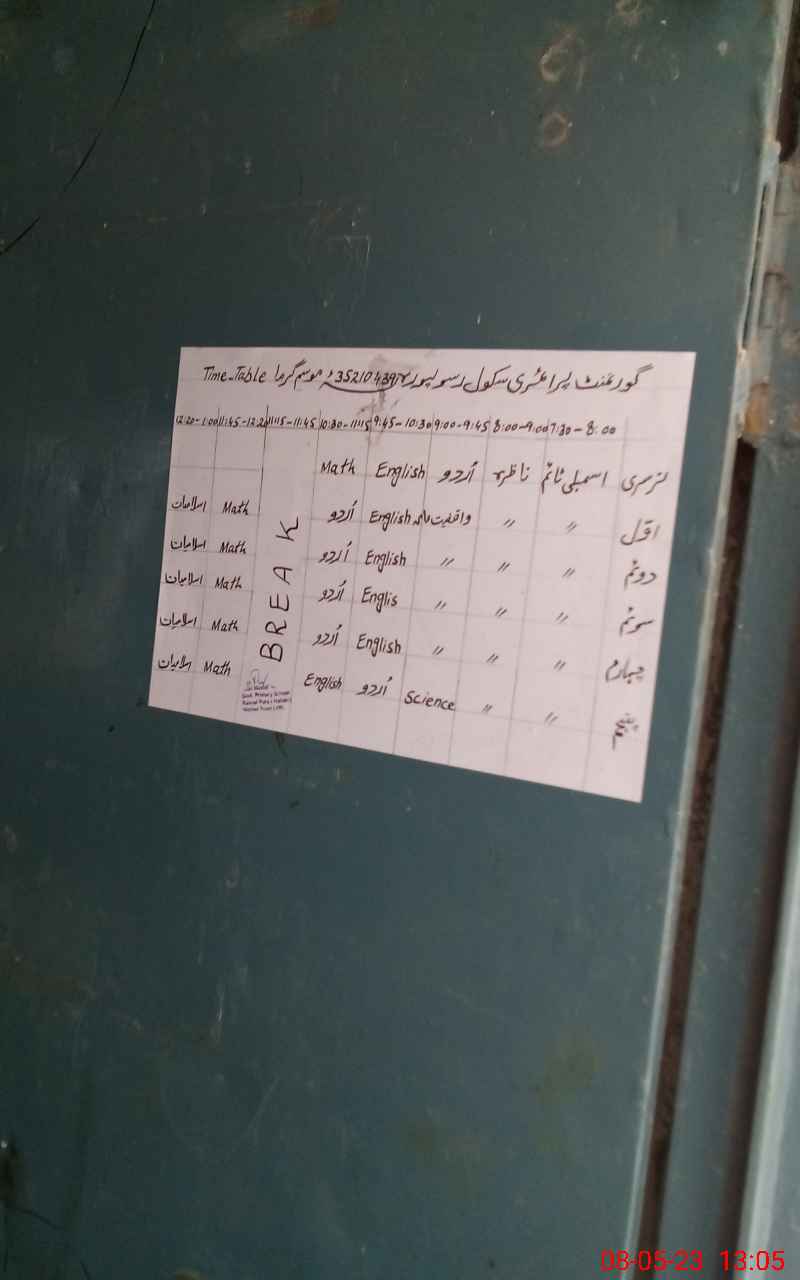 گورنمنٹ پرائمری سکول رسولپور 35210439 موسم گرما Time-Table
7:30-8:00 8:00-9:00 9:00-9:45 9:45-10:30 10:30-11:15 11:15-11:45 11:45-12:20 12:20-1:00
نرسری اسمبلی ٹائم ناظرہ اُردو English Math
اوّل 〃 〃 واقفیت عامہ English اُردو Math اسلامیات
دوئم 〃 〃 〃 English اُردو Math اسلامیات
سوئم 〃 〃 〃 Englis اُردو Math اسلامیات
چہارم 〃 〃 〃 English اُردو Math اسلامیات
پنجم 〃 〃 Science اُردو English Math اسلامیات
BREAK
Govt. Primary School
08-05-23 13:05